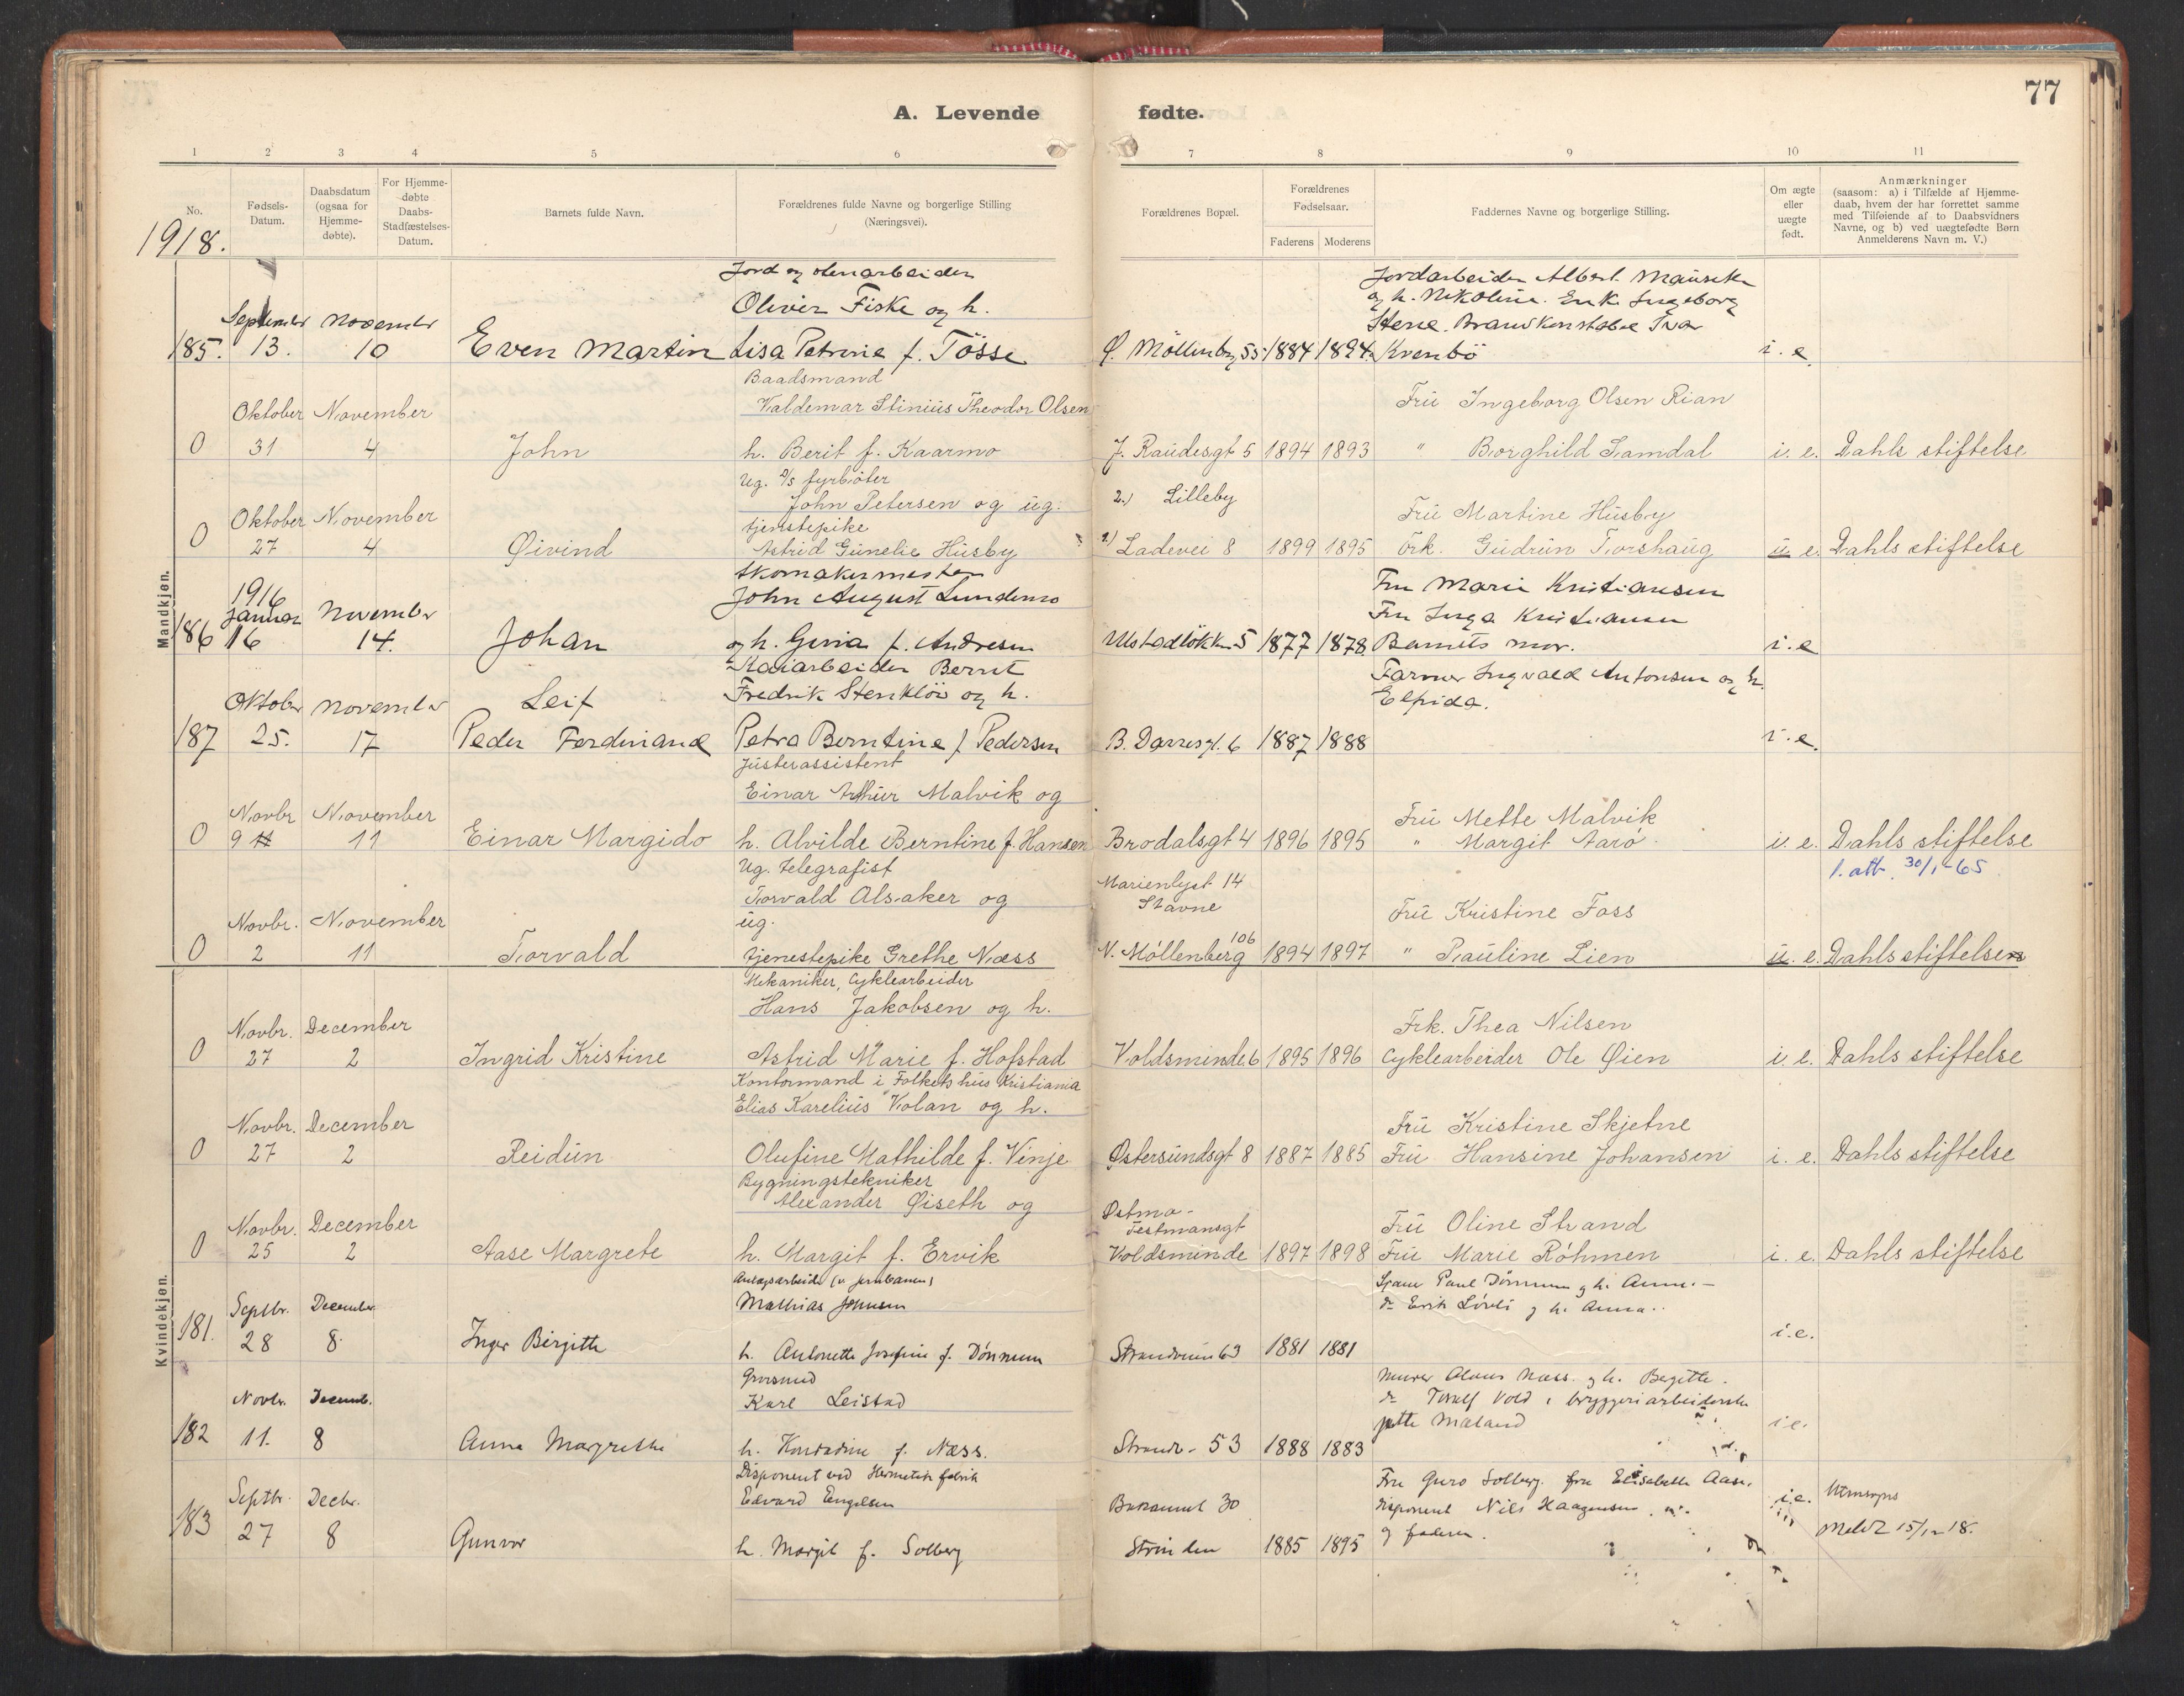 77
A. Levende fødte.
1 2 3 4 5 6 7 8 9 10 11
No.
Fødsels-
Datum.
Daabsdatum
(ogsaa for
Hjemme-
døbte).
For Hjemme-
døbte
Daabs-
Stadfæstelses-
Datum.
Barnets fulde Navn.
Forældrenes fulde Navne og borgerlige Stilling
(Næringsvei).
Forældrenes Bopæl.
Forældrenes
Fødselsaar.
Faderens Moderens
Faddernes Navne og borgerlige Stilling.
Om ægte
eller
uægte
født.
Anmærkninger
(saasom: a) i Tilfælde af Hjemme-
daab, hvem der har forrettet samme
med Tilføiende af to Daabsvidners
Navne, og b) ved uægtefødte Børn
Anmelderens Navn m. V.)
1918.
Mandkjøn.
Jord og stenarbeider
Oliver Fiske og h.
Jordarbeider Albert
og h. Nikoline. Enk. Ingeborg
Stene. Brandkonstabel Ivar
September November
185. 13. 10 Even Martin Lisa Petrine f. Tösse Ø. Möllenbg 55 1884 1894 Kvenbö i. e.
Baadsmand
Oktober November Valdemar Stinius Theodor Olsen Frü Ingeborg Olsen Rian
0 31 4 John h. Berit f. Kaarmo J. Raudesgt 5 1894 1893 " Borghild Samdal i. e. Dahls stiftelse
Ug. D/S fyrböter
John Petersen og ug. 2.) Lilleby
Oktober November tjenstepike Frü Martine Hüsby
0 27 4 Øivind Astrid Günelie Hüsby 1) Ladevei 8 1899 1895 Frk. Güdrün Torshaüg u. e. Dahls stiftelse
Skomakermester
1916 John August Lundemo Fru Marie Kristiansen
Januar November Fru Inga Kristiansen
186 16 14. Johan og h. Gina f. Andresen Ulstadløkken 5 1877 1878. Barnets mor. i. e
Kaiarbeider Bernt Farmer Ingvald Antonsen og h.
Oktober November Leif Fredrik Stenkløv og h. Elpida.
187 25. 17 Peder Ferdinand Petra Berntine f. Pedersen B. Darresgt. 6 1887 1888 i. e.
Jüsterassistent
Einar Arthür Malvik og
Novbr November Frü Mette Malvik
0 9 11 Einar Margido h. Alvilde Berntine f. Hansen Brodalsgt 4 1896 1895 " Margit Aarö i. e. Dahls stiftelse
1. att. 30/1-65
Ug. telegrafist Marienlyst 14
Torvald Alsaker og Stavne
Novbr. November ug. Frü Kristine Foss
0 2 11 Torvald tjenestepike Grethe Næss N. Möllenberg 106 1894 1897 " Paüline Lien u. e. Dahls stiftelse
Kvindekjøn.
Mekaniker, Cyklearbeider
Hans Jakobsen og h.
Novbr. December Frk. Thea Nilsen
0 27 2 Ingrid Kristine Astrid Marie f. Hofstad Voldsminde 6 1895 1896 Cyklearbeider Ole Øien i. e. Dahls stiftelse
Kontormand i Folkets hüs Kristiania
Elias Kareliüs Volan og h.
Novbr. December Frü Kristine Skjetne
0 27 2 Reidün Olufine Mathilde f. Vinje Østersündsgt 8 1887 1885 Frü Hansine Johansen i. e. Dahls stiftelse
Bygningstekniker
Alexander Øiseth og Østmo-
Testmansgt
Novbr. December Frü Oline Strand
0 25 2 Aase Margrete h. Margit f. Ervik Voldsminde 1897 1898 Frü Marie Röhmen i. e. Dahls stiftelse
Anlægsarbeider (v. jernbanen)
Septbr. December Mathias Johnsen
Paul Dönnum og h. Anna.
Erik Lövli og h. Anna.
181. 28 8. Inger Birgitte h. Antonette Josefine f. Dönnum Strandveien 63 1881 1881 i. e.
Grovsmed
Novbr. Decemb. Karl Leistad
Murer Olaus Næss og h. Bergitte.
Torolf Vold, bryggeriarbeiderske
Mæland
182 11. 8 Anna Margrethe h. Konradine f. Næss. Strandv. 53 1888 1883 i. e.
Disponent ved Hermetikfabrik
Septbr. Decbr. Edvard Engelsen 30
Fru Guro Solberg. fru Elisabeth Aase.
Disponent Nils Haagensen
og faderen.
183 27 8 Gunvor h. Margit f. Solberg Strinden 1885 1895 i. e. Utensogns
Meldt 15/12 18.